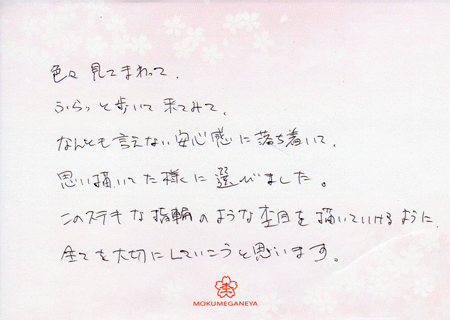 色々見てまわって、
ふらっと歩いて来てみて、
なんとも言えない安心感に落ち着いて、
思い描いてた様に選びました。
このステキな指輪のような杢目を描いていけるように
全てを大切にしていこうと思います。
MOKUMEGANEYA